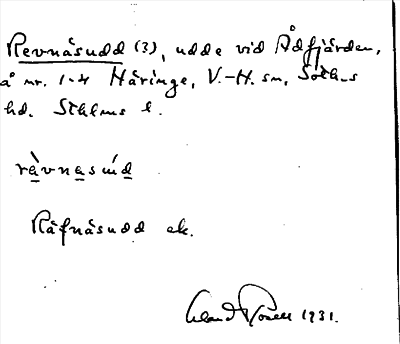 Revnäsudd (3), udde vid Ådfjärden,
å nr. 1-4 Häringe, V.-H. sn, Soth-s
hd. Sthlms l.
ràvnasúd
Räfnäsudd ek.
1931.